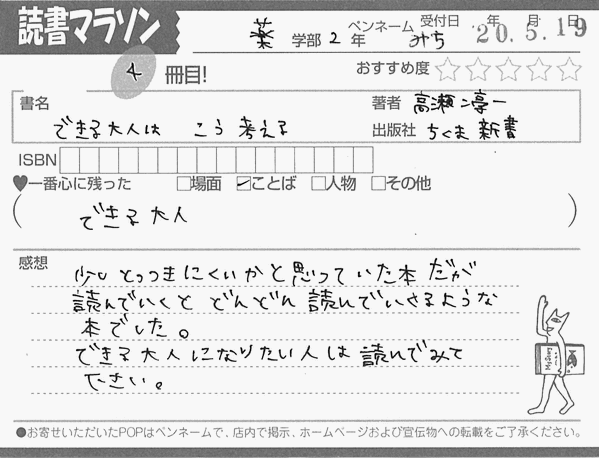 読書マラソン
薬 学部 2 年 ペンネーム みち 受付日 20.年5.月19日
4 冊目! おすすめ度 ☆☆☆☆☆
書名 できる大人は こう 考える
著者 高瀬 淳一
出版社 ちくま 新書
ISBN
♥一番心に残った □場面 ☑ことば □人物 □その他
( できる大人 )
感想
少し とっつきにくいかと思っていた本 だが
読んでいくと どんどん 読んでいきるような
本でした。
できる大人になりたい人は 読んでみて
下さい。
●お寄せいただいたPOPはペンネームで、店内で掲示、ホームページおよび宣伝物への転載をご了承ください。